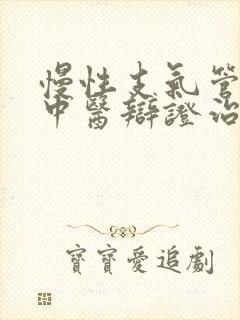 慢性支氣管
中醫辯證治
寶寶愛追劇